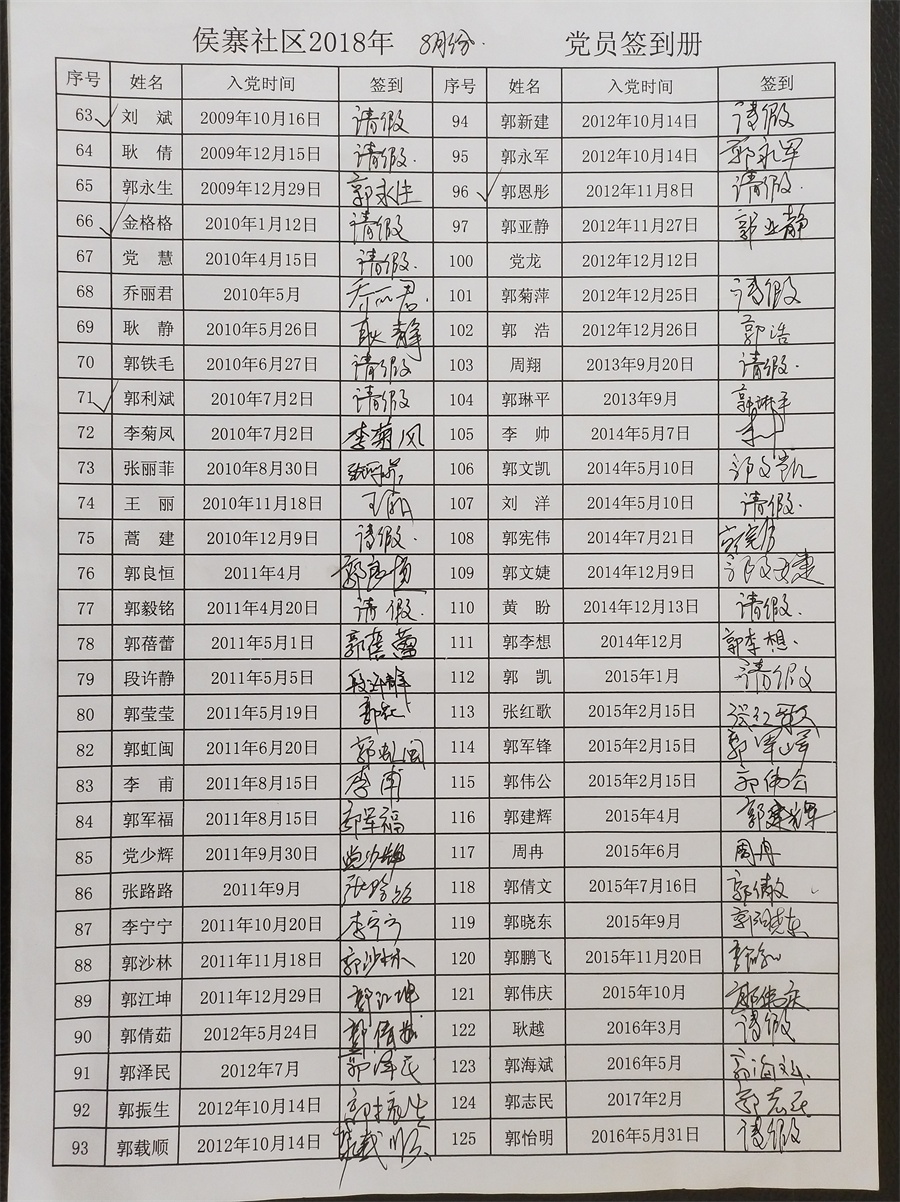 侯寨社区2018年 8月份. 党员签到册
序号 姓名 入党时间 签到 序号 姓名 入党时间 签到
63 刘斌 2009年10月16日 请假 94 郭新建 2012年10月14日 请假
64 耿倩 2009年12月15日 请假. 95 郭永军 2012年10月14日 郭永军
65 郭永生 2009年12月29日 郭永生 96 郭恩彤 2012年11月8日 请假.
66 金格格 2010年1月12日 请假 97 郭亚静 2012年11月27日 郭亚静
67 党慧 2010年4月15日 请假. 100 党龙 2012年12月12日
68 乔丽君 2010年5月 乔丽君. 101 郭菊萍 2012年12月25日 请假
69 耿静 2010年5月26日 耿静 102 郭浩 2012年12月26日 郭浩
70 郭铁毛 2010年6月27日 请假 103 周翔 2013年9月20日 请假.
71 郭利斌 2010年7月2日 请假 104 郭琳平 2013年9月 郭琳平
72 李菊凤 2010年7月2日 李菊凤 105 李帅 2014年5月7日
73 张丽菲 2010年8月30日 106 郭文凯 2014年5月10日 郭文凯
74 王丽 2010年11月18日 王丽 107 刘洋 2014年5月10日 请假.
75 蒿建 2010年12月9日 请假. 108 郭宪伟 2014年7月21日 郭宪伟
76 郭良恒 2011年4月 郭良恒 109 郭文婕 2014年12月9日 郭文婕
77 郭毅铭 2011年4月20日 请假. 110 黄盼 2014年12月13日 请假.
78 郭蓓蕾 2011年5月1日 郭蓓蕾 111 郭李想 2014年12月 郭李想.
79 段许静 2011年5月5日 段许静 112 郭凯 2015年1月 请假
80 郭莹莹 2011年5月19日 113 张红歌 2015年2月15日 张红歌
82 郭虹闽 2011年6月20日 郭虹闽 114 郭军锋 2015年2月15日 郭军锋
83 李甫 2011年8月15日 李甫 115 郭伟公 2015年2月15日 郭伟公
84 郭军福 2011年8月15日 郭军福 116 郭建辉 2015年4月 郭建辉
85 党少辉 2011年9月30日 党少辉 117 周冉 2015年6月 周冉
86 张路路 2011年9月 张路路 118 郭倩文 2015年7月16日 郭倩文
87 李宁宁 2011年10月20日 李宁宁 119 郭晓东 2015年9月 郭晓东
88 郭沙林 2011年11月18日 郭沙林 120 郭鹏飞 2015年11月20日
89 郭江坤 2011年12月29日 郭江坤 121 郭伟庆 2015年10月 郭伟庆
90 郭倩茹 2012年5月24日 郭倩茹 122 耿越 2016年3月 请假
91 郭泽民 2012年7月 郭泽民 123 郭海斌 2016年5月 郭海斌
92 郭振生 2012年10月14日 郭振生 124 郭志民 2017年2月 郭志民
93 郭载顺 2012年10月14日 郭载顺 125 郭怡明 2016年5月31日 请假